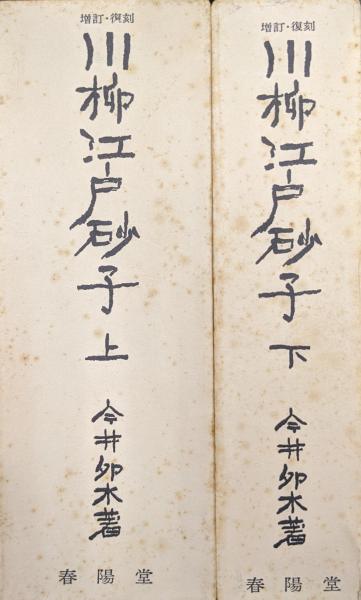 増訂・復刻
川柳江戸砂子 上
今井卯木著
春陽堂
増訂・復刻
川柳江戸砂子 下
今井卯木著
春陽堂